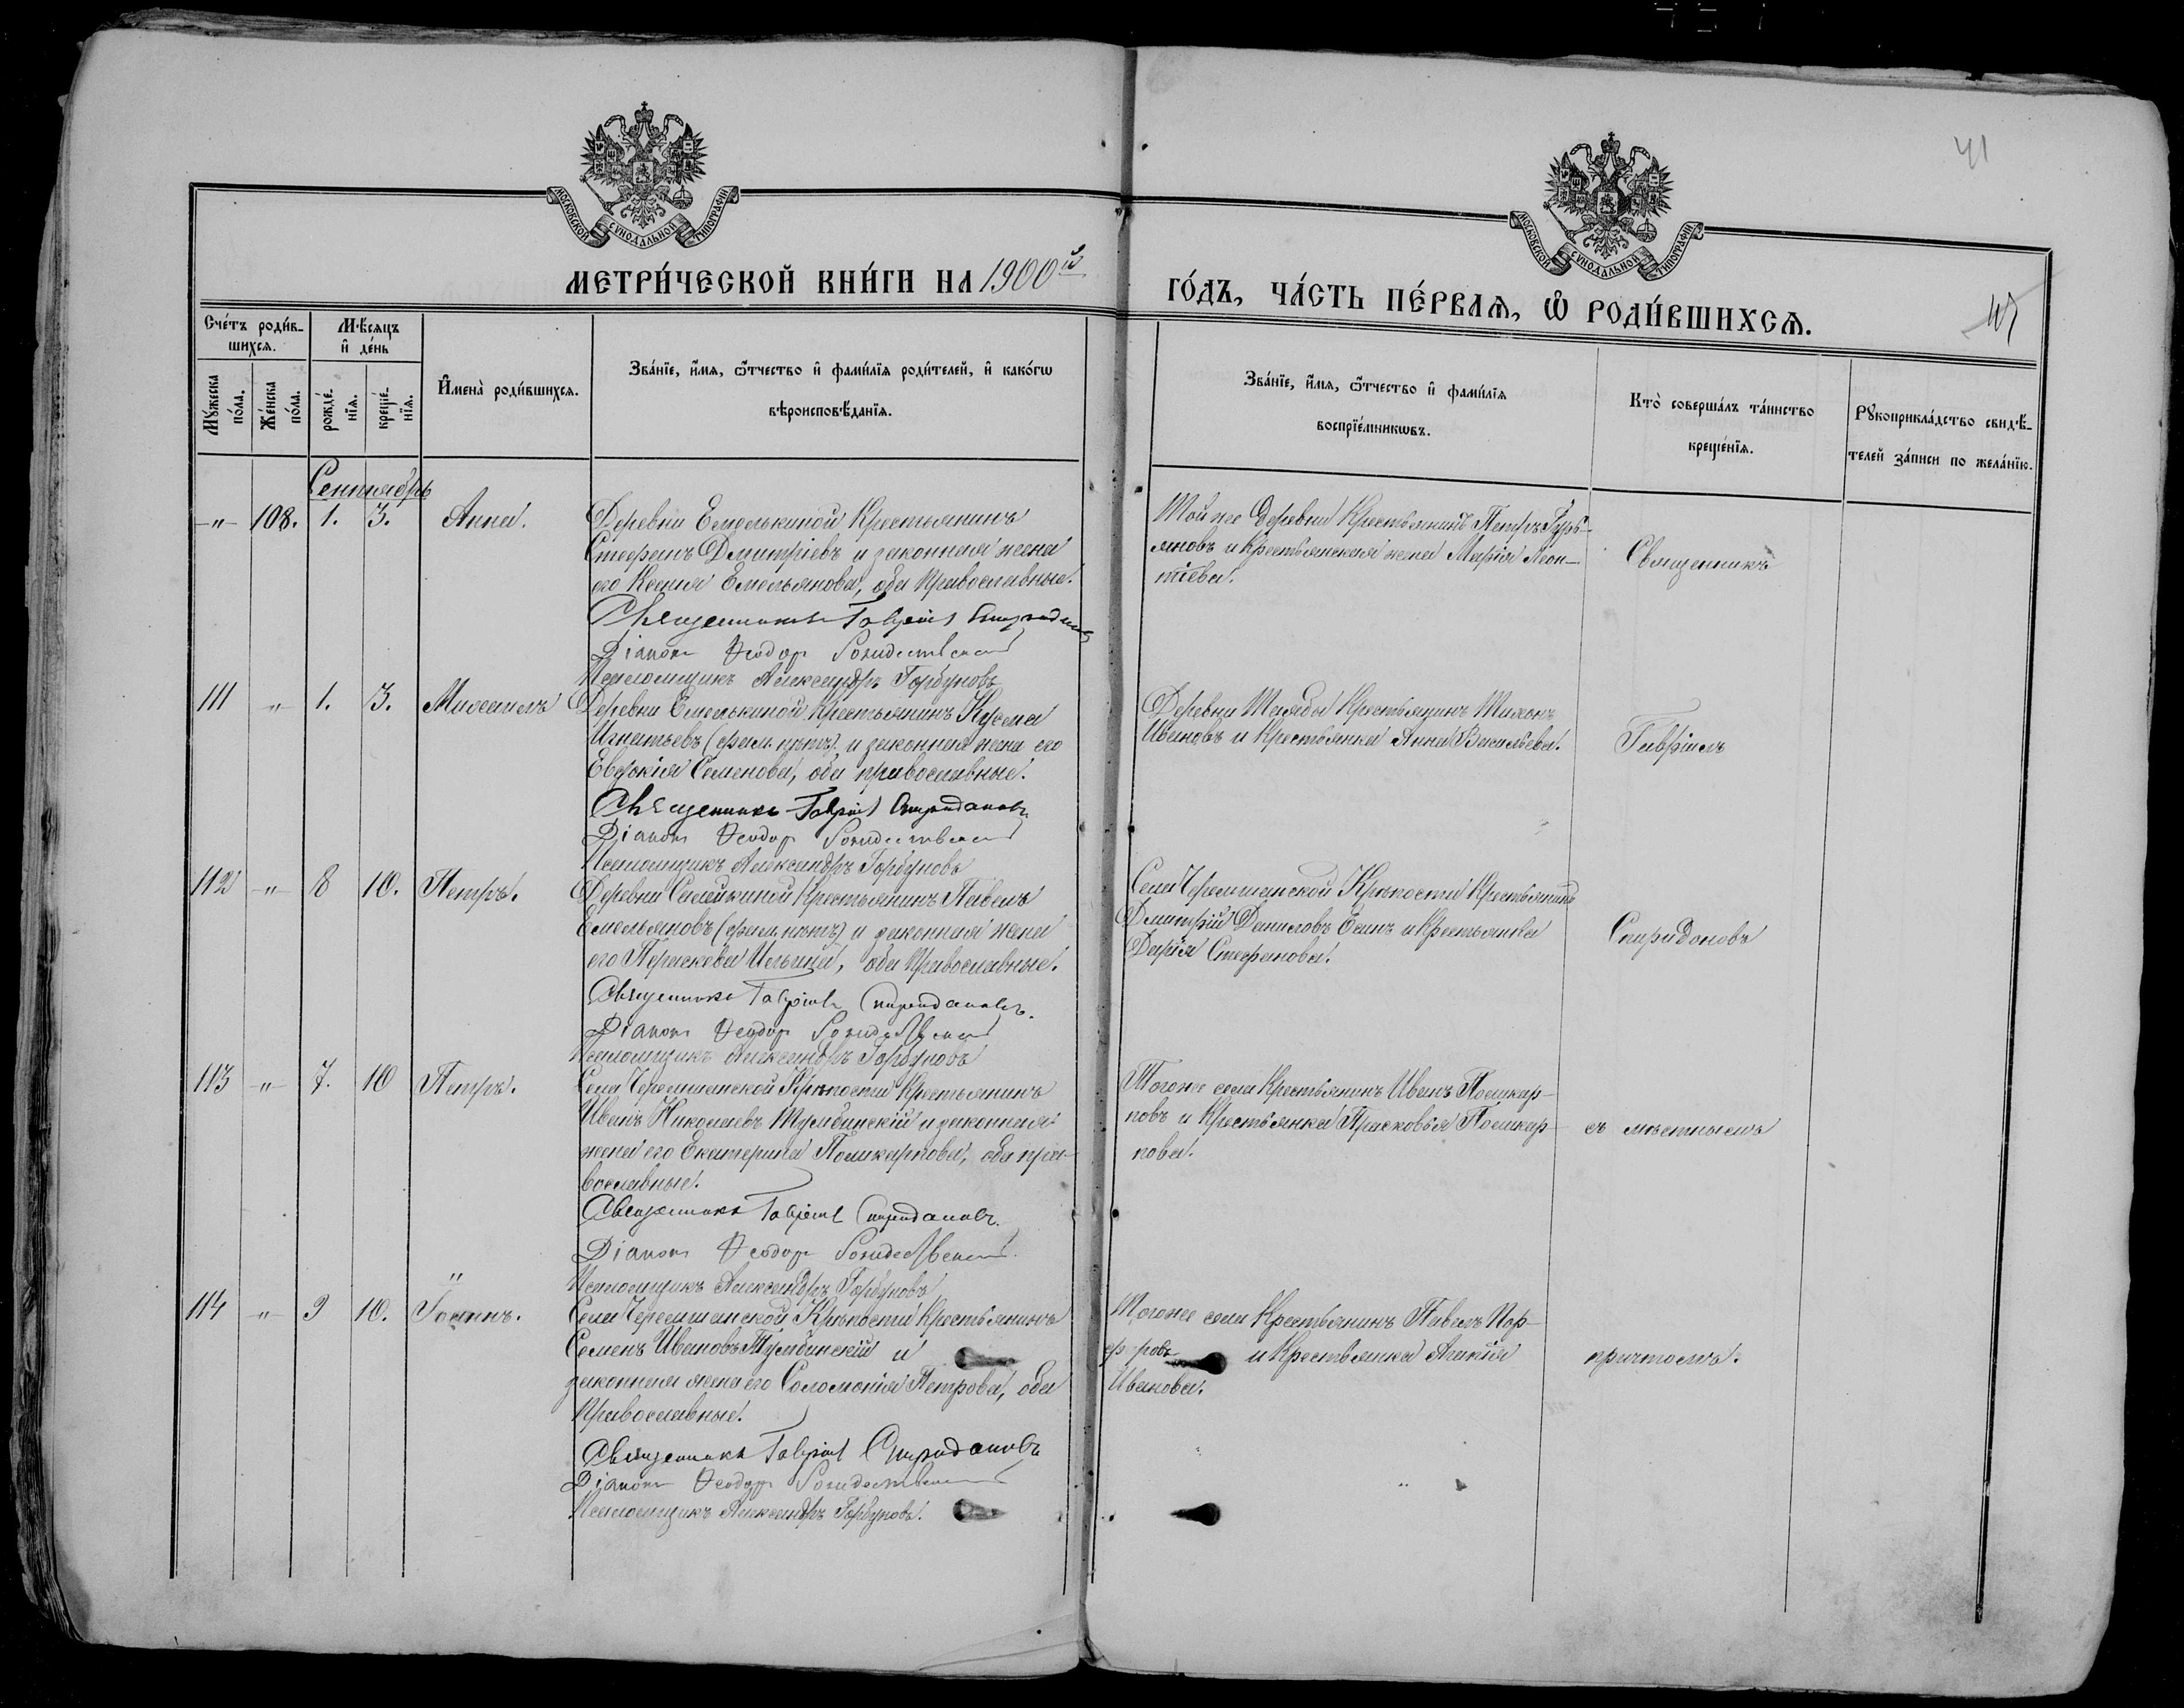 41
МОСКОВСКОЙ СУНОДАЛЬНОЙ ТИПОГРАФІИ
МОСКОВСКОЙ СУНОДАЛЬНОЙ ТИПОГРАФІИ
МЕТРИ́ЧЕСКОЙ КНИ́ГИ НА 1900й
ГО́ДЪ, ЧА́СТЬ ПЕ́РВАѦ, Ѿ РОДИ́ВШИХСѦ.
Сче́тъ роди́в-
шихсѧ.
Мѣ́сяцъ
и҆ де́нь
Мꙋ́жеска
по́ла.
Же́нска
по́ла.
рожде́-
нїѧ.
креще́-
нїѧ.
И҆мена̀ роди́вшихсѧ.
Зва́нїе, и҆́мѧ, ѻ҆́тчество и҆ фами́лїѧ роди́телей, и҆ како́гѡ
вѣроисповѣ́данїѧ.
Зва́нїе, и҆́мѧ, ѻ҆́тчество и҆ фами́лїѧ
воспрїе́мникѡвъ.
Кто̀ соверша́лъ та́инство
креще́нїѧ.
Рꙋкоприкла́дство свидѣ́-
телей за́писи по жела́нїю.
Сентябрь
-"- 108. 1. 3. Анна.
Деревни Емелькиной Крестьянинъ
Стефанъ Дмитріевъ и законная жена
его Ксения Емельянова, оба Православные.
Священникъ Гавріилъ Спиридоновъ
Діаконъ Ѳеодоръ Рождественскій
Псаломщикъ Александръ Горбуновъ
Той же деревни Крестьянинъ Петръ Гурь-
яновъ и Крестьянская жена Марія Леон-
тіева.
Священникъ
111 -"- 1. 3. Михаилъ
Деревни Емелькиной Крестьянинъ Кузма
Игнатьевъ (фам. нѣтъ) и законная жена его
Евдокія Семенова, оба православные.
Священникъ Гавріилъ Спиридоновъ
Діаконъ Ѳеодоръ Рождественскій
Псаломщикъ Александръ Горбуновъ
Деревни Крестьянинъ Тихонъ
Ивановъ и Крестьянка Анна Васильева.
Гавріилъ
112 -"- 8 10. Петръ.
Деревни Семейкиной Крестьянинъ Павелъ
Емельяновъ (фам. нѣтъ) и законная жена
его Параскева Ильина, оба Православные.
Священникъ Гавріилъ Спиридоновъ.
Діаконъ Ѳеодоръ Рождественскій
Псаломщикъ Александръ Горбуновъ
Села Черемшанской Крѣпости Крестьянинъ
Дмитрій Даниловъ Есинъ и Крестьянка
Дарія Стефанова.
Спиридоновъ
113 -"- 7. 10 Петръ.
Села Черемшанской Крѣпости Крестьянинъ
Иванъ Николаевъ Тумбинскій и законная
жена его Екатерина Поликарпова, оба пра-
вославные.
Священникъ Гавріилъ Спиридоновъ.
Діаконъ Ѳеодоръ Рождественскій.
Псаломщикъ Александръ Горбуновъ
Тогоже села Крестьянинъ Иванъ Поликар-
повъ и Крестьянка Прасковья Поликар-
пова.
съ мѣстнымъ
114 -"- 9 10. Іоаннъ.
Села Черемшанской Крѣпости Крестьянинъ
Семенъ Ивановъ Тумбинскій и
законная жена его Соломонія Петрова, оба
Православные.
Священникъ Гавріилъ Спиридоновъ
Діаконъ Ѳеодоръ Рождественскій
Псаломщикъ Александръ Горбуновъ.
Тогоже села Крестьянинъ Павелъ Пор-
и Крестьянка
Иванова.
причтомъ.